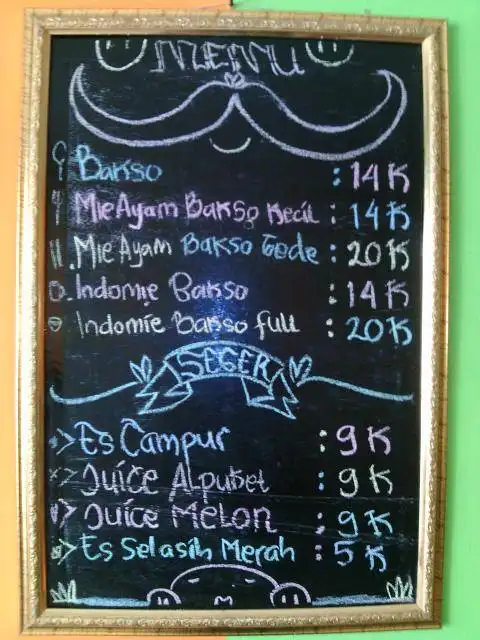 MENU
Bakso : 14 K
Mie Ayam Bakso Kecil : 14 K
Mie Ayam Bakso Gede : 20 K
Indomie Bakso : 14 K
Indomie Bakso full : 20 K
SEGER
Es Campur : 9 K
Juice Alpuket : 9 K
Juice Melon : 9 K
Es Selasih Merah : 5 K